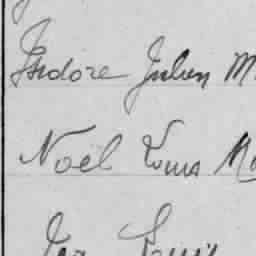 Isidore Julien M
Noël Louis Ma
Louis